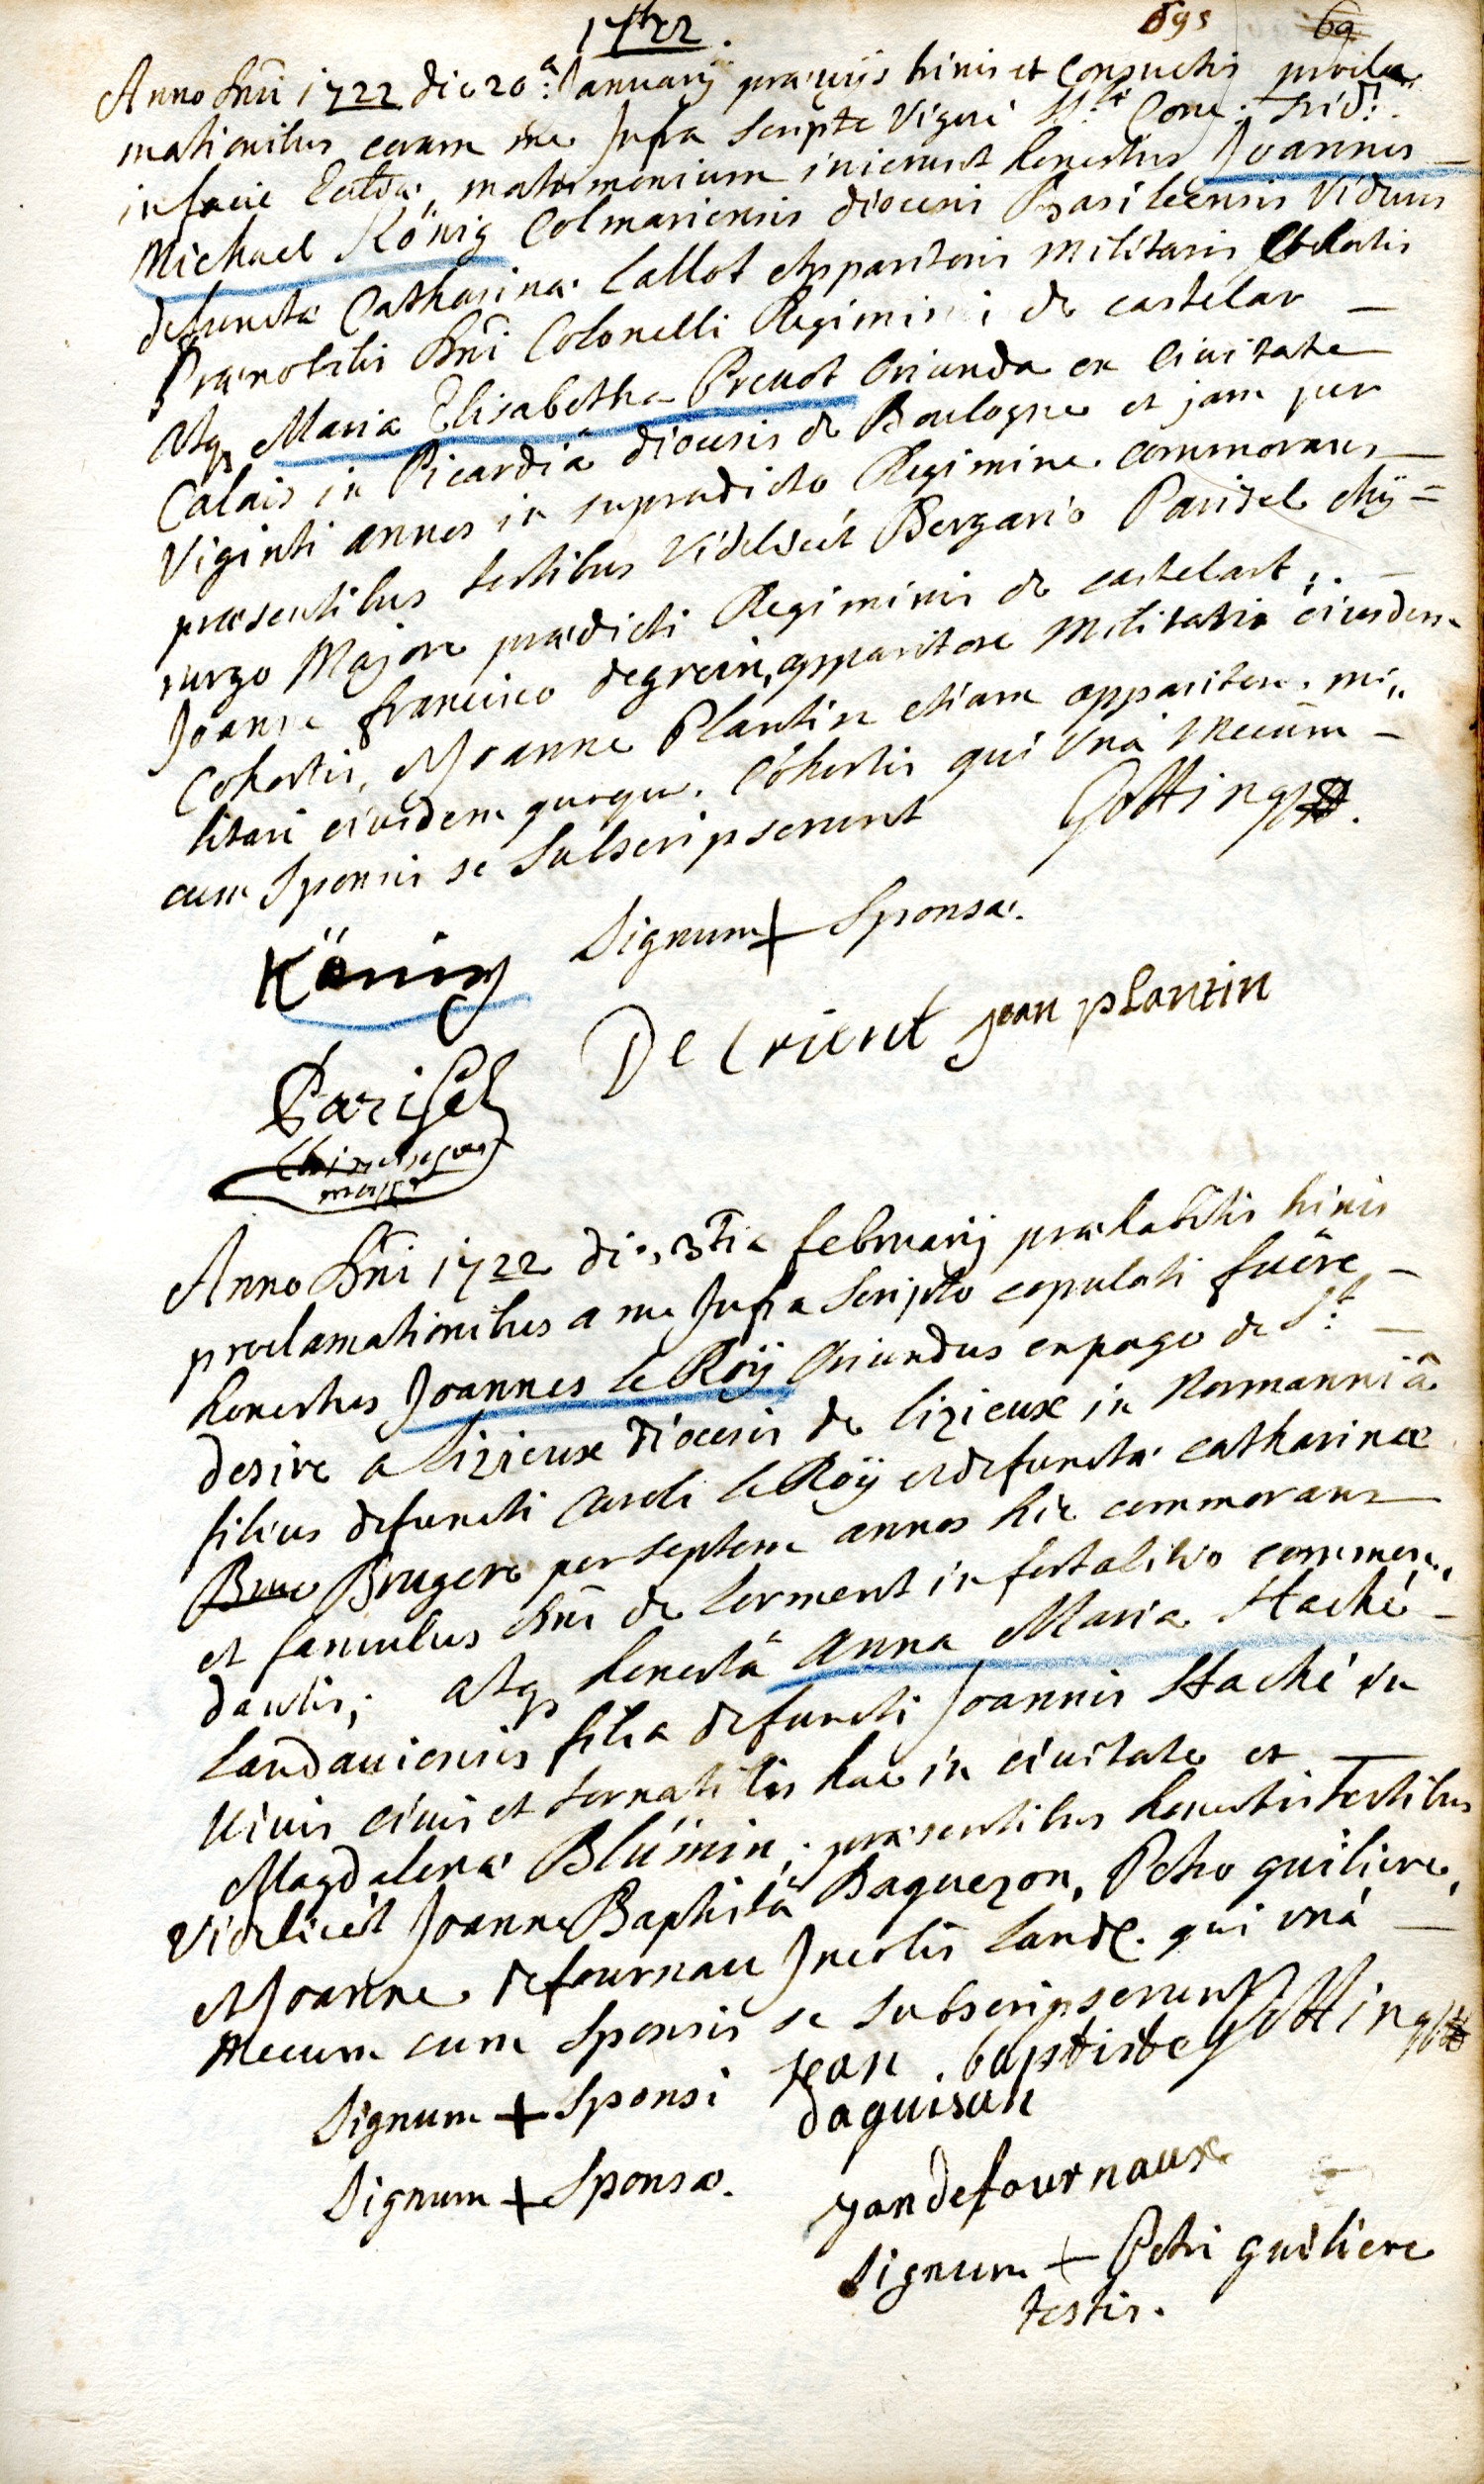 1722.
695 69
Anno Dni 1722 die 20a: Januarij praeviis trinis et Consuetis procla
mationibus coram me Infra Scripto Vigore Sti Conc: Trid:
in facie Ecclae, matrimonium inierunt honestus Joannes
Michael König Colmariensis dioecesis Basileensis Viduus
defunctae Catharinae Lallot Apparitoris Militaris Cohortis
Praenobilis Dni Colonelli Regiminis de castelar
Atq Maria Elisabetha Prevot Oriunda ex Civitate
Calais in Picardiâ dioecesis de Boulogne et jam per
Viginti annos in supradicto Regimine commorans
praesentibus testibus Videlicét Pariset Chy=
rurgo Majore praedicti Regiminis de castelart,
Joanne francisco degrein, apparitore Militaris eiusdem
Cohortis, & Joanne Plantin etiam apparitore mi,,
litari eiusdem quoque Cohortis qui Vná Mecum
cum Sponsis se Subscripserunt Gotting
König Signum + Sponsae.
jean plantin
Pariset
Chirurgien
major
Anno Dni 1722 die 3tia februarij praehabitis trinis
proclamationibus a me Infra Scripto copulati fuêre
honestus Joannes le Roÿ Oriundus ex pago de St
desire a Lizieux dioecesis de lizieux in Normanniâ
filius defuncti Caroli le Roÿ et defunctae catharinae
Brugere per septem annos hic commorans
et famulus Dni de Lorment in fortalitio commen,,
dantis; atq honestâ Anna Maria Haché
Landaviensis filia defuncti Joannis Haché in
Vivis civis et hac in civitate et
Magdalenae Blümin; praesentibus honestis testibus
Videlicét Joanne Baptistâ Baguezon, Petro guiliere,
& Joanne defournau Incolis Landae qui vná
Mecum cum Sponsis se Subscripserunt Gotting
Signum + Sponsi jean baptiste
daguison
Signum + Sponsae.
yan defournaux
Signum + Petri guiliere
testis.